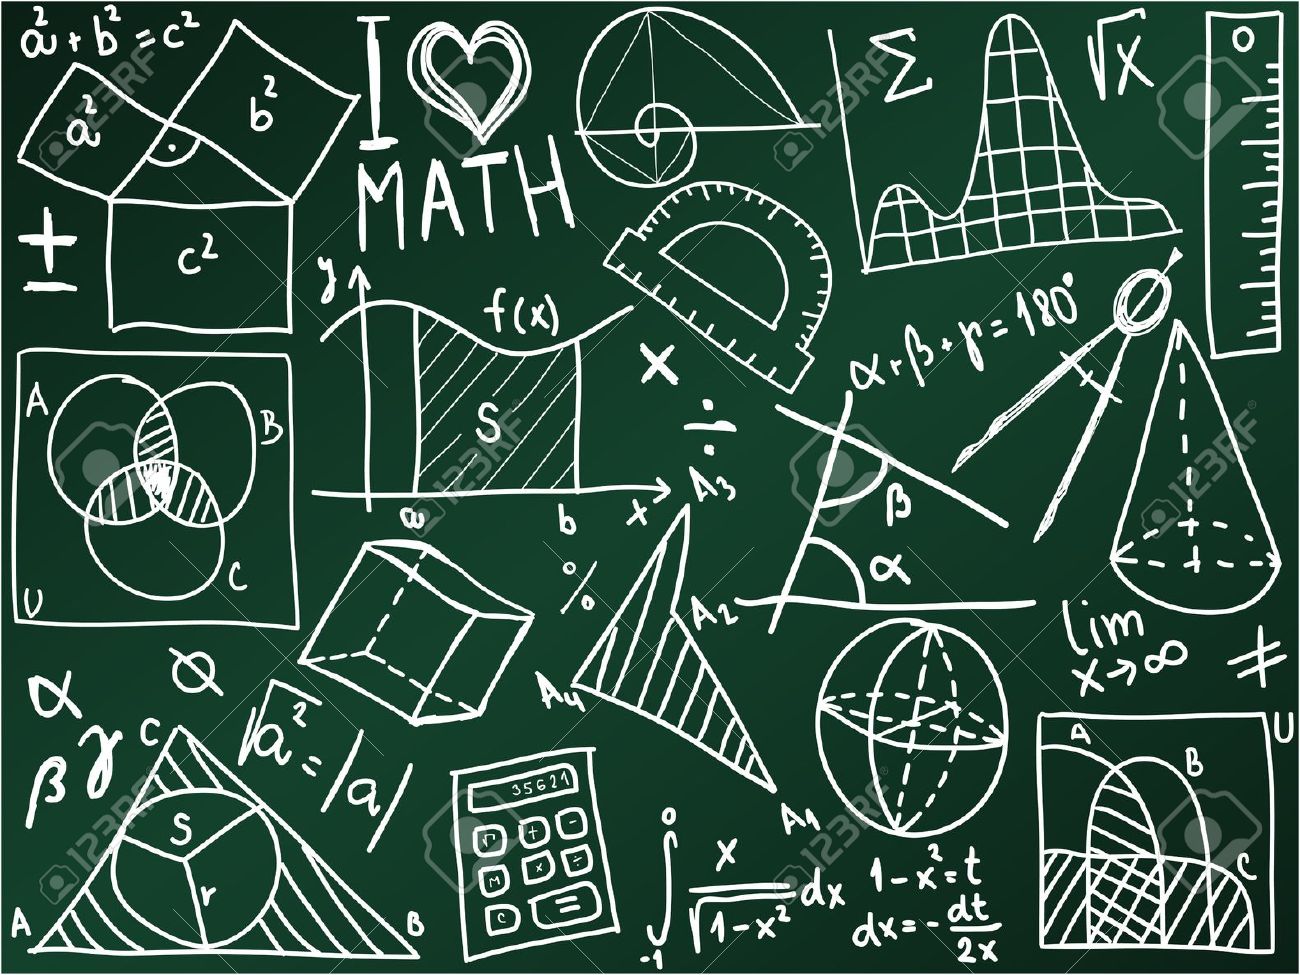 a² + b² = c²
a²
b²
c²
±
I
MATH
Σ
√x
0
y
f(x)
S
a
b
x
×
÷
%
α + β + γ = 180°
β
α
A
B
C
U
A3
A2
A4
A1
lim
x→∞
≠
α
β
γ
∅
√a² = |a|
C
S
r
A
B
35621
√ + -
M × ÷
C =
0
∫ x/√1-x² dx
-1
1-x²=t
dx=-dt/2x
U
A
B
C
123RF